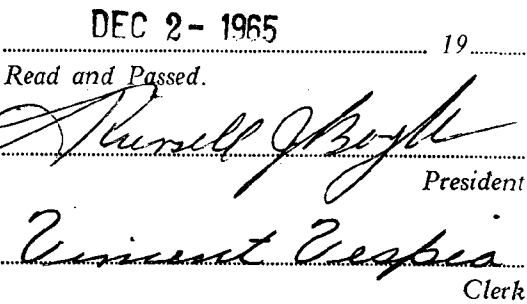 DEC 2 - 1965
19
Read and Passed.
Russell J Boyle
President
Vincent Vespia
Clerk